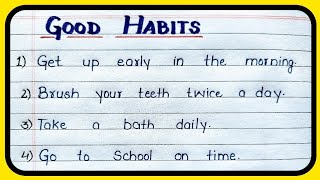 GOOD HABITS
1) Get up early in the morning.
2) Brush your teeth twice a day.
3) Take a bath daily.
4) Go to School on time.